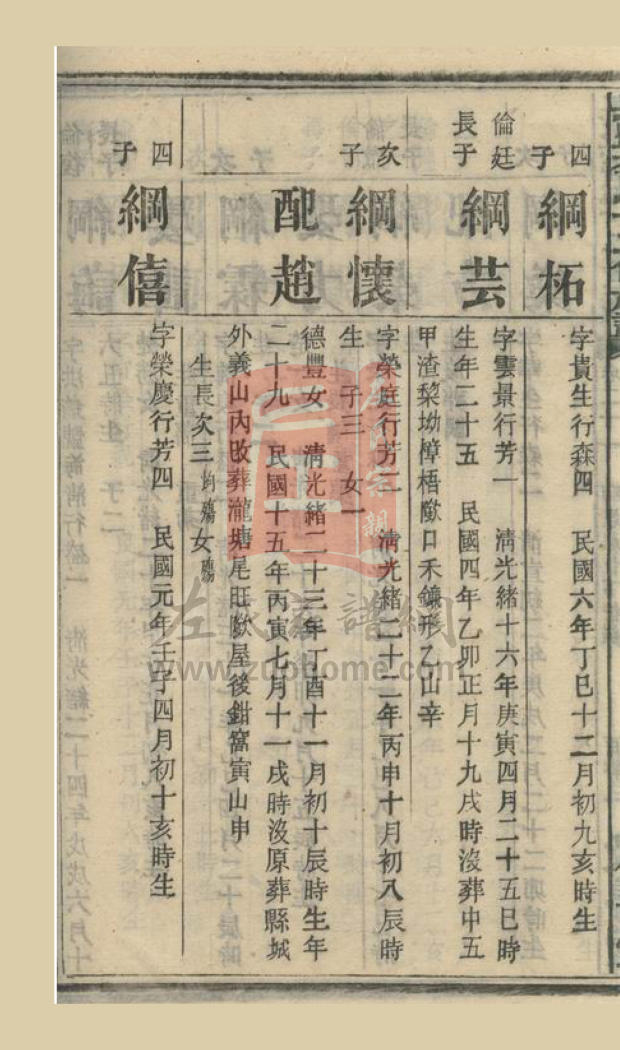 四子
綱柘
字貴生行森四 民國六年丁巳十二月初九亥時生
倫廷長子
綱芸
字雲景行芳一 清光緒十六年庚寅四月二十五巳時
生年二十五 民國四年乙卯正月十九戌時沒葬中五
甲渣棃坳樟梧歐口禾鐮形乙山辛
次子
綱懷
字榮庭行芳二 清光緒二十二年丙申十月初八辰時
生 子三 女一
配趙
德豐女 清光緒二十三年丁酉十一月初十辰時生年
二十九 民國十五年丙寅七月十一戌時沒原葬縣城
外義山內改葬瀧塘尾旺歐屋後鉗窩寅山申
生長次三均殤女殤
四子
綱僖
字榮慶行芳四 民國元年壬子四月初十亥時生
左氏家譜網
www.zuohome.com